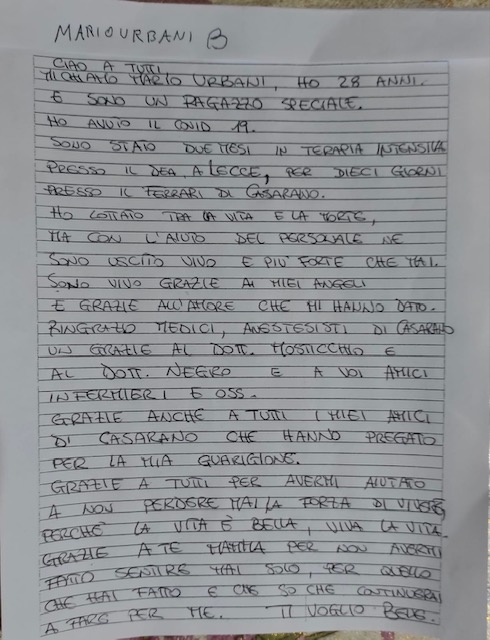 MARIO URBANI B
CIAO A TUTTI
MI CHIAMO MARIO URBANI, HO 28 ANNI.
E SONO UN RAGAZZO SPECIALE.
HO AVUTO IL COVID 19.
SONO STATO DUE MESI IN TERAPIA INTENSIVA
PRESSO IL DEA A LECCE, PER DIECI GIORNI
PRESSO IL FERRARI DI CASARANO.
HO LOTTATO TRA LA VITA E LA MORTE,
MA CON L'AIUTO DEL PERSONALE NE
SONO USCITO VIVO E PIU' FORTE CHE MAI.
SONO VIVO GRAZIE AI MIEI ANGELI
E GRAZIE ALL'AMORE CHE MI HANNO DATO.
RINGRAZIO MEDICI, ANESTESISTI DI CASARANO
UN GRAZIE AL DOTT. MOSTICCHIO E
AL DOTT. NEGRO E A VOI AMICI
INFERMIERI E OSS.
GRAZIE ANCHE A TUTTI I MIEI AMICI
DI CASARANO CHE HANNO PREGATO
PER LA MIA GUARIGIONE.
GRAZIE A TUTTI PER AVERMI AIUTATO
A NON PERDERE MAI LA FORZA DI VIVERE
PERCHÉ LA VITA È BELLA, VIVA LA VITA.
GRAZIE A TE MAMMA PER NON AVERMI
FATTO SENTIRE MAI SOLO, PER QUELLO
CHE HAI FATTO E CHE SO CHE CONTINUERAI
A FARE PER ME. TI VOGLIO BENE.